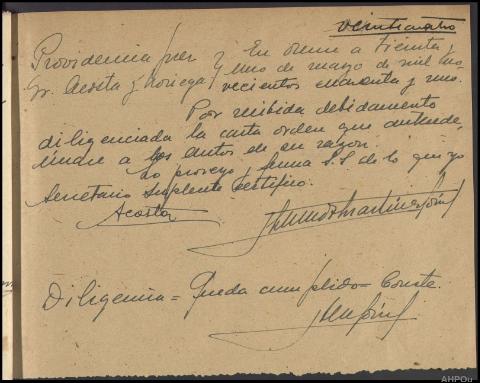 veinticuatro
Providencia Juez
Sr. Acosta y Noriega
En Orense a treinta y
uno de marzo de mil no-
vecientos cuarenta y uno.
Por recibida debidamente
diligenciada la carta orden que antecede,
únase a los autos de su razón.
Lo proveyó y firma S.S. de lo que yo
Secretario suplente certifico.
Acosta
Diligencia = Queda cumplido = Conste.
AHPOu